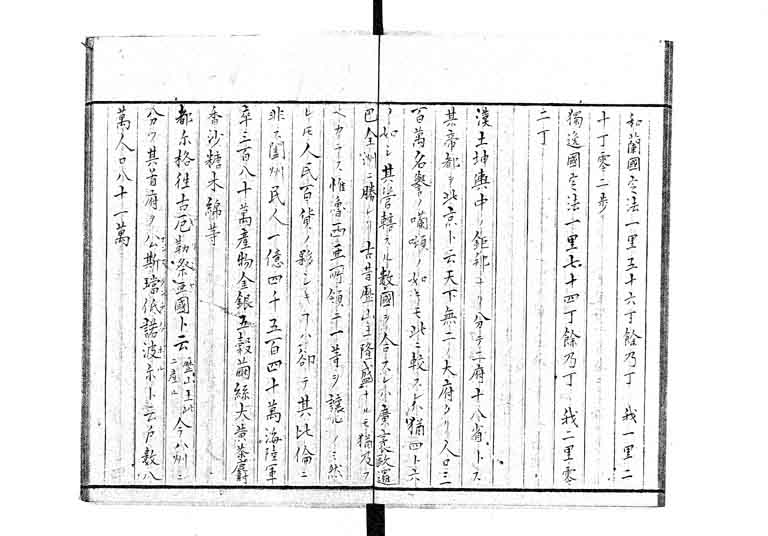 和蘭國定法一里五十六丁餘乃丁 我一里二
十丁零二歩
獨逸國定法一里七十四丁餘乃丁 我二里零
二丁
漢土坤輿中ノ鉅邦ナリ分テ二府十八省トス
其帝都ヲ北京ト云天下無二ノ大府ナリ人口三
百萬名譽ノ嘯頌ノ如キモ此ニ較スレハ猶四ト六
ノ如シ其管轄スル數國ヲ合スレハ廣袤歐邏
巴全洲ニ勝レリ古昔歴山王隆盛ナルモ猶及フ
ヘカラス惟魯西亜所領ニ一等ヲ讓ルノミ然
レ圧人民百貨ノ夥シキフハ却テ其比倫ニ
非ス闔州民人一億四千五百四十萬海陸軍
卒三百八十萬產物金銀五穀繭絲大黄茶麝
香沙糖木綿等
都尓格往古厄勒祭亜國ト云 歴山王此ニ產ル 今八州ニ
分ツ其首府ヲ公斯璫低諾波尓ト云戸數八
萬人口八十一萬